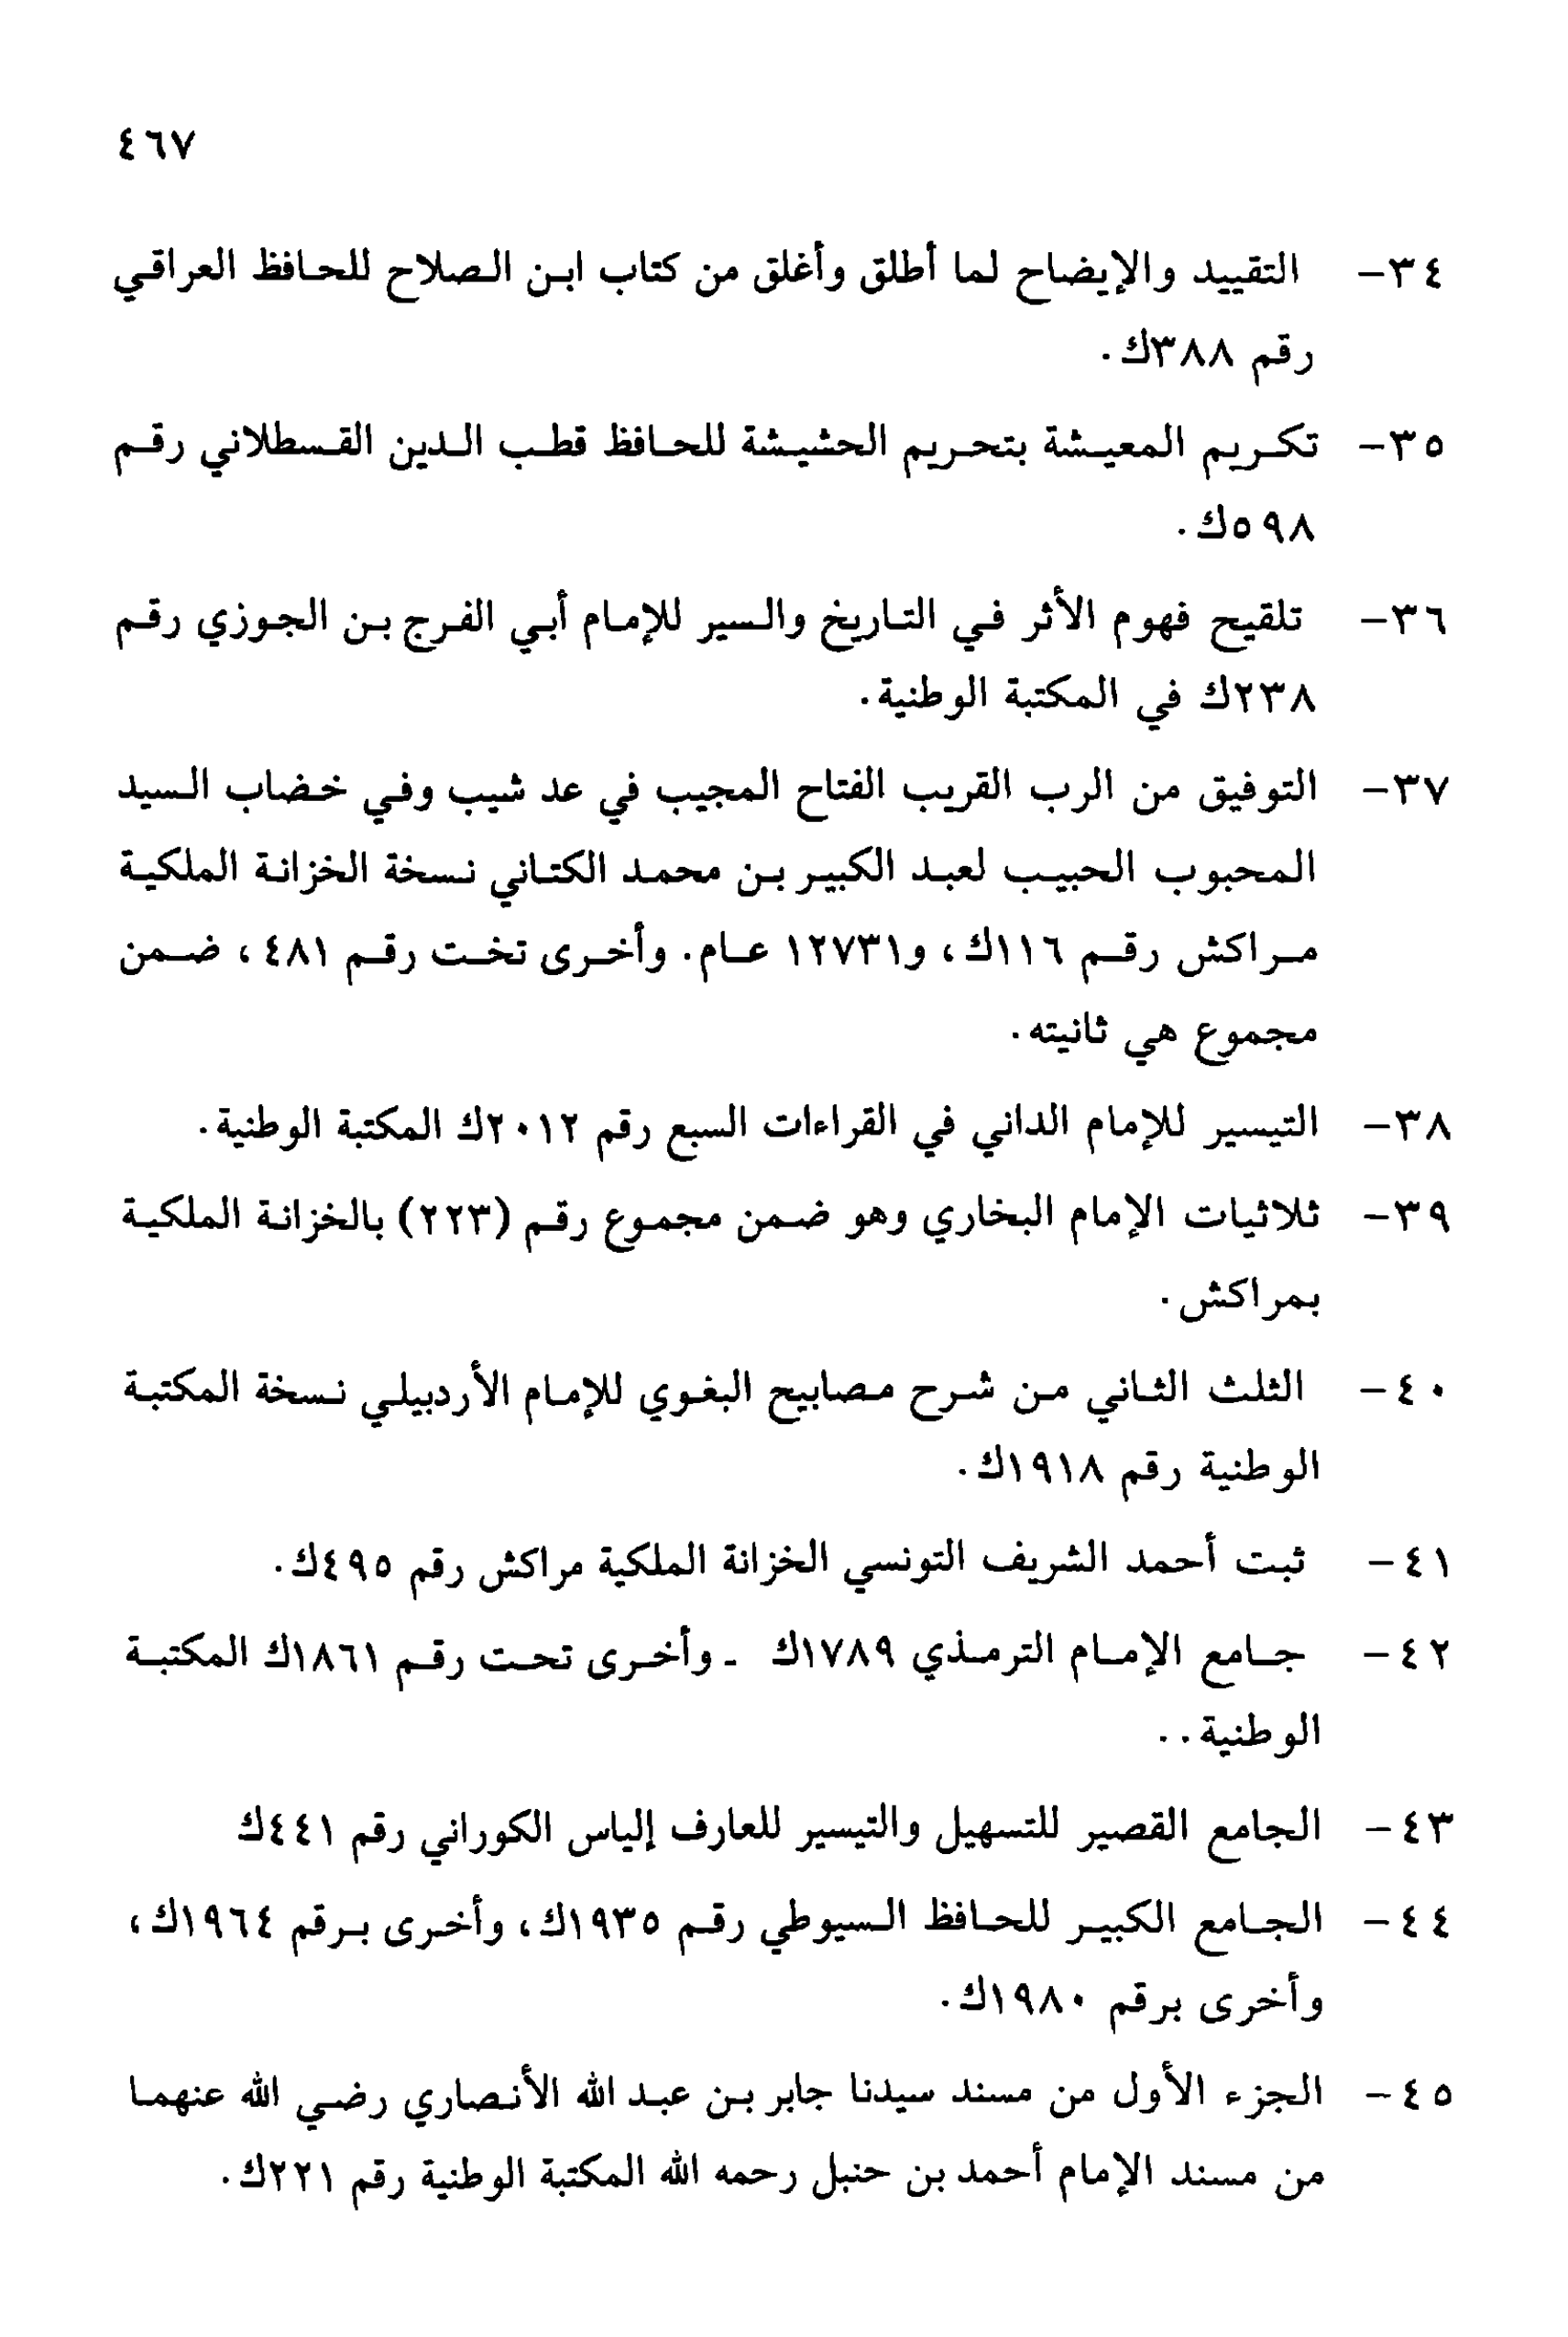 ٤٦٧
٣٤- التقييد والإيضاح لما أطلق وأغلق من كتاب ابن الصلاح للحافظ العراقي
رقم ٣٨٨ك.
٣٥- تكريم المعيشة بتحريم الحشيشة للحافظ قطب الدين القسطلاني رقم
٥٩٨ك.
٣٦- تلقيح فهوم الأثر في التاريخ والسير للإمام أبي الفرج بن الجوزي رقم
٢٣٨ك في المكتبة الوطنية.
٣٧- التوفيق من الرب القريب الفتاح المجيب في عد شيب وفي خضاب السيد
المحبوب الحبيب لعبد الكبير بن محمد الكتاني نسخة الخزانة الملكية
مراكش رقم ١١٦ك، و١٢٧٣١ عام. وأخرى تخت رقم ٤٨١، ضمن
مجموع هي ثانيته.
٣٨- التيسير للإمام الداني في القراءات السبع رقم ٢٠١٢ك المكتبة الوطنية.
٣٩- ثلاثيات الإمام البخاري وهو ضمن مجموع رقم (٢٢٣) بالخزانة الملكية
بمراكش.
٤٠- الثلث الثاني من شرح مصابيح البغوي للإمام الأردبيلي نسخة المكتبة
الوطنية رقم ١٩١٨ك.
٤١- ثبت أحمد الشريف التونسي الخزانة الملكية مراكش رقم ٤٩٥ك.
٤٢- جامع الإمام الترمذي ١٧٨٩ك - وأخرى تحت رقم ١٨٦١ك المكتبة
الوطنية..
٤٣- الجامع القصير للتسهيل والتيسير للعارف إلياس الكوراني رقم ٤٤١ك
٤٤- الجامع الكبير للحافظ السيوطي رقم ١٩٣٥ك، وأخرى برقم ١٩٦٤ك،
وأخرى برقم ١٩٨٠ك.
٤٥- الجزء الأول من مسند سيدنا جابر بن عبد الله الأنصاري رضي الله عنهما
من مسند الإمام أحمد بن حنبل رحمه الله المكتبة الوطنية رقم ٢٢١ك.